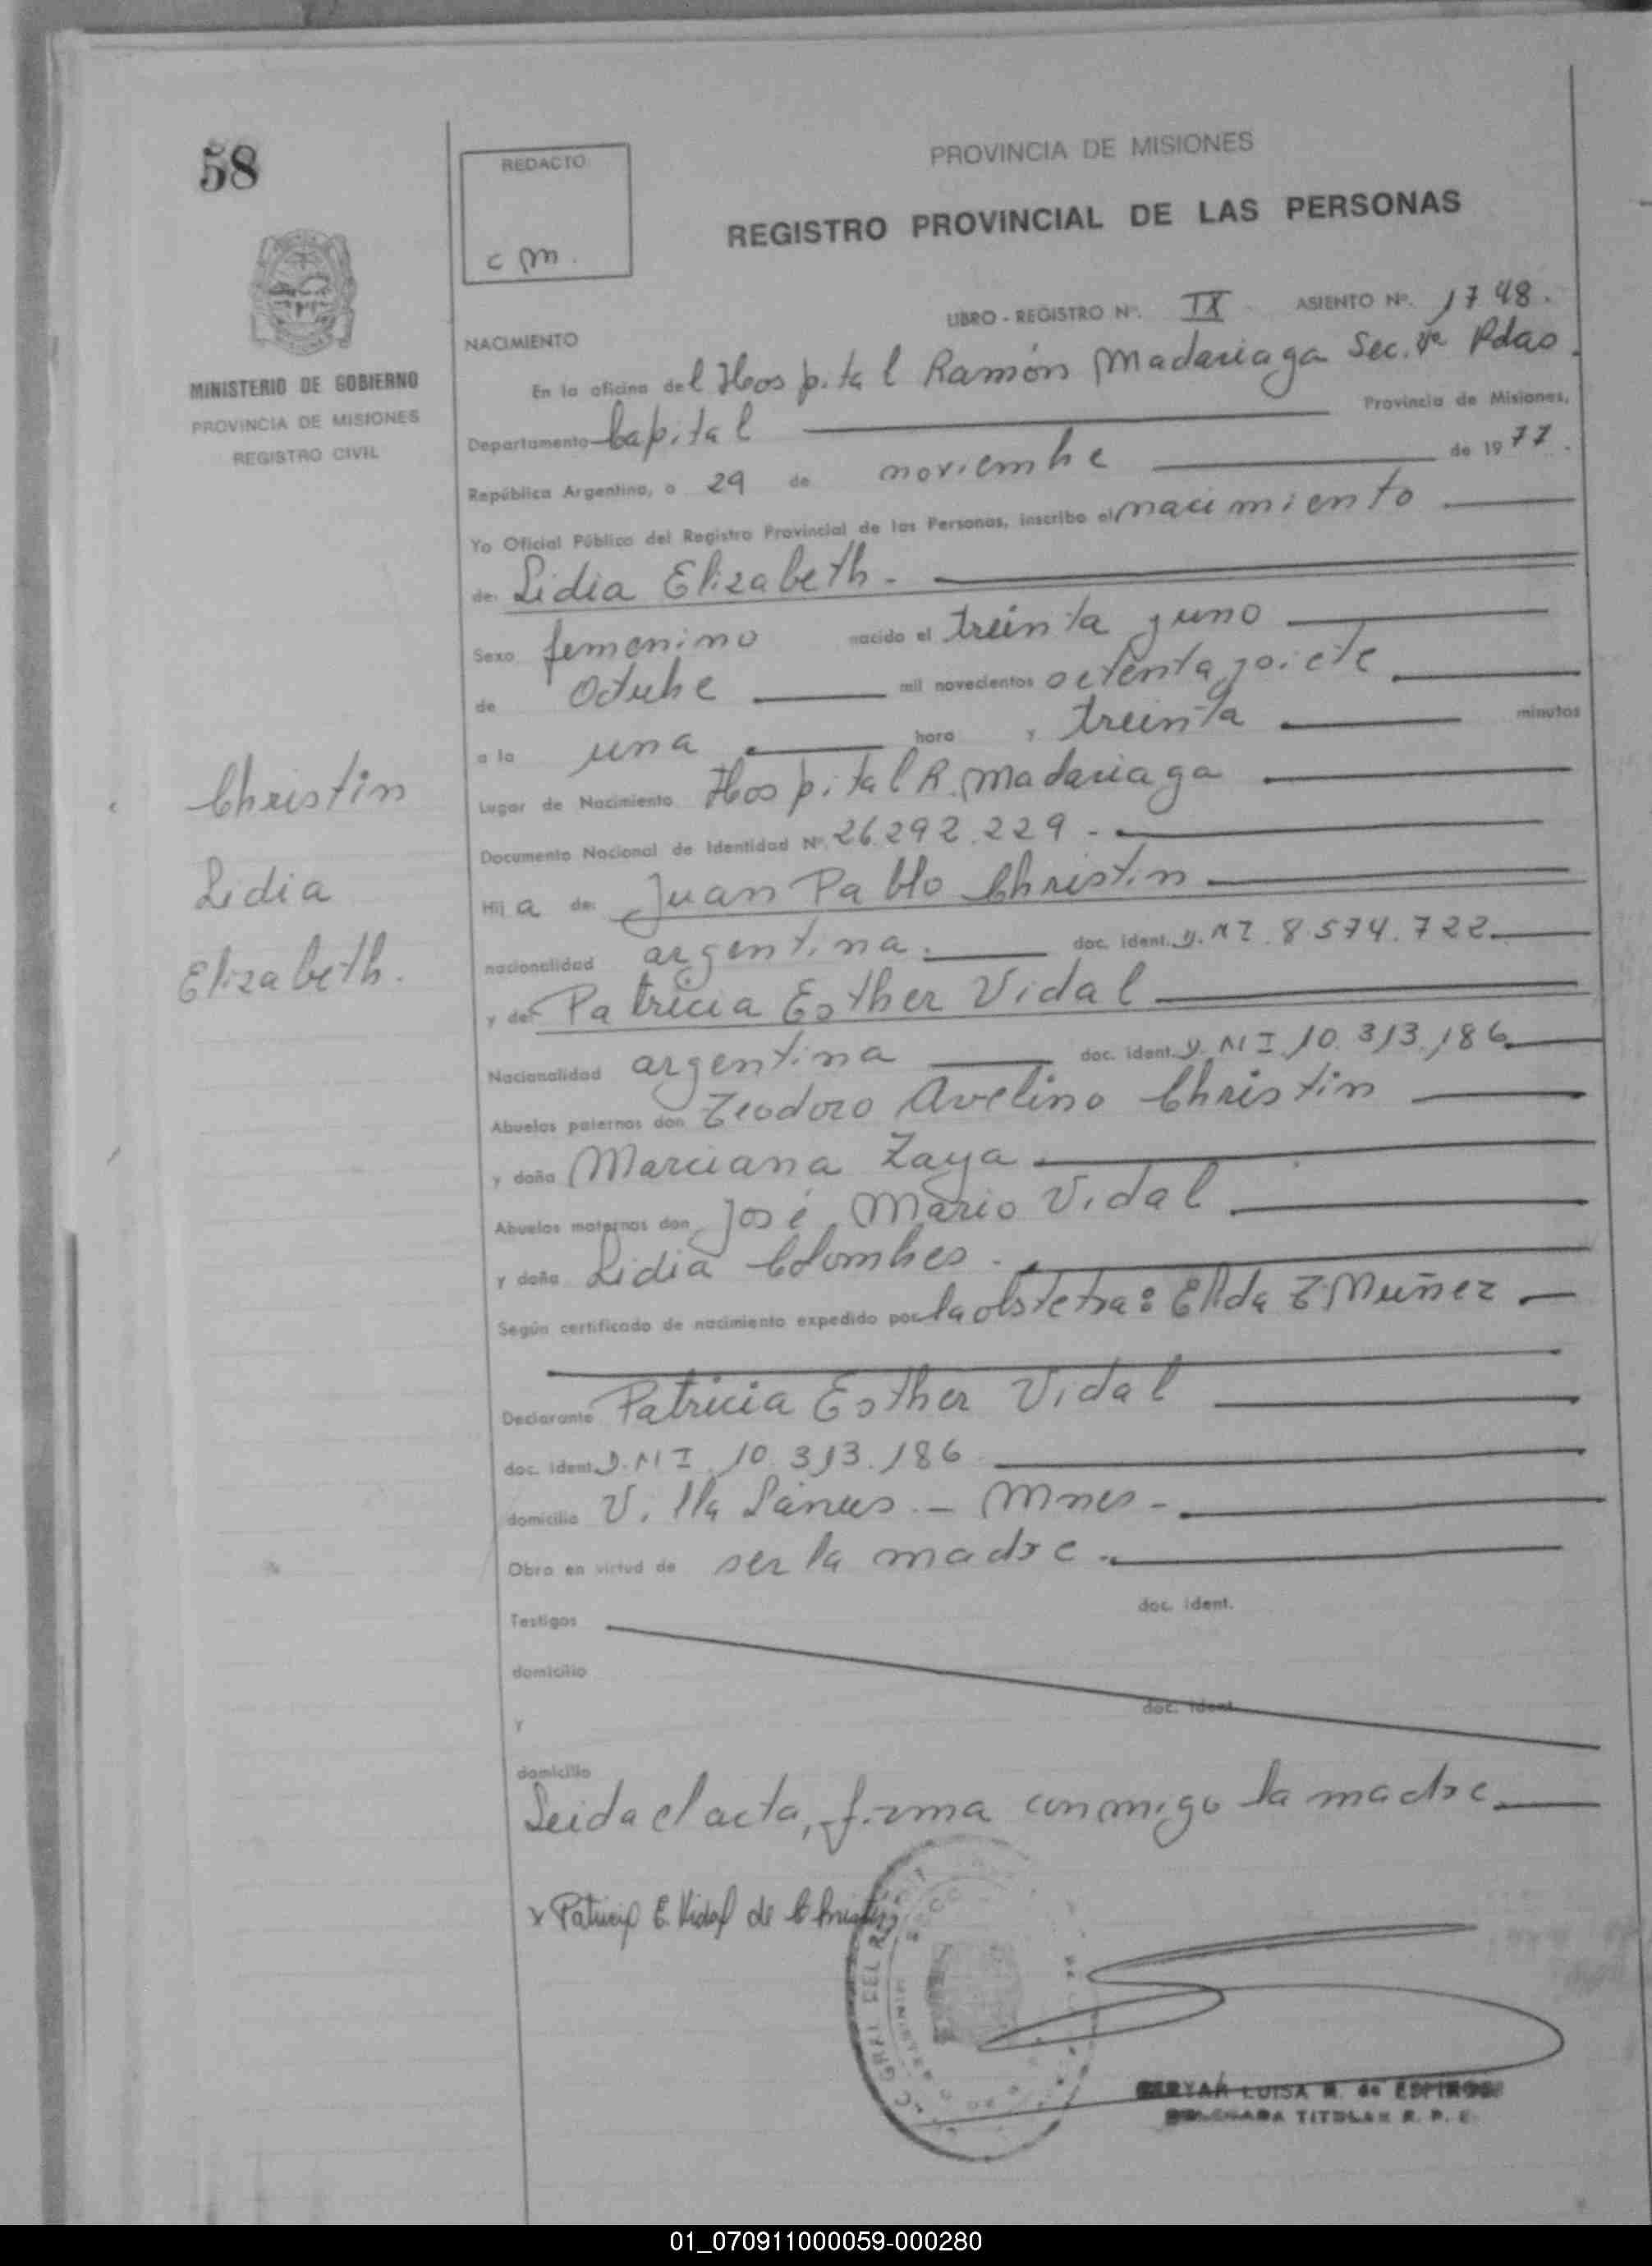 58
REDACTO
c m.
PROVINCIA DE MISIONES
REGISTRO PROVINCIAL DE LAS PERSONAS
MINISTERIO DE GOBIERNO
PROVINCIA DE MISIONES
REGISTRO CIVIL
LIBRO - REGISTRO Nº. IX ASIENTO Nº. 1748.
NACIMIENTO
En la oficina del Hospital Ramón Madariaga Sec. Pdas.
Departamento Capital Provincia de Misiones,
República Argentina, a 29 de noviembre de 1977.
Yo Oficial Público del Registro Provincial de las Personas, inscribo el nacimiento
de: Lidia Elizabeth.
Sexo femenino nacido el treinta y uno
de Octubre mil novecientos setenta y siete
a la una hora y treinta minutos
Lugar de Nacimiento Hospital R. Madariaga
Documento Nacional de Identidad Nº. 26.292.229.-
Christin
Lidia
Elizabeth.
Hij a de: Juan Pablo Christin
nacionalidad argentina. doc. ident. D.N I. 8.574.722
y de: Patricia Esther Vidal
Nacionalidad argentina doc. ident. D.N I. 10.313.186
Abuelos paternos don Teodoro Avelino Christin
y doña Marciana Zaya
Abuelos maternos don José Mario Vidal
y doña Lidia Colombes.
Según certificado de nacimiento expedido por la obstetra: Elida Muñez
Declarante Patricia Esther Vidal
doc. ident. D.N I. 10.313.186
domicilio Villa Lanus - Mnes-
Obra en virtud de ser la madre.
Testigos doc. ident.
domicilio
y doc. ident.
domicilio
Leida el acta, firma conmigo la madre
x Patricia E. Vidal de Christin
GRAL DEL
LUISA R. de ESPINOSA
DELEGADA TITULAR R. P.
01_070911000059-000280